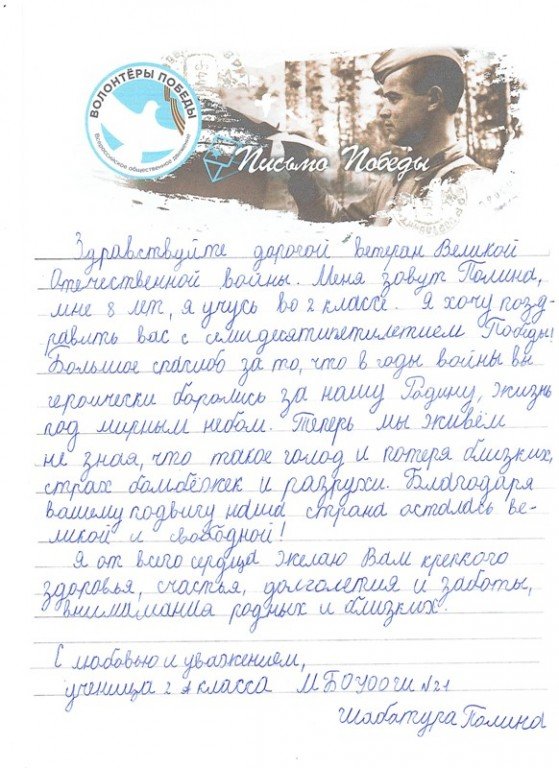 ВОЛОНТЁРЫ ПОБЕДЫ
Всероссийское общественное движение
Письмо Победы
Здравствуйте дорогой ветеран Великой
Отечественной войны. Меня зовут Полина,
мне 8 лет, я учусь во 2 классе. Я хочу позд-
равить вас с семидесятипятилетием Победы!
Большое спасибо за то, что в годы войны вы
героически боролись за нашу Родину, жизнь
под мирным небом. Теперь мы живём
не зная, что такое голод и потеря близких,
страх бомбёжек и разрухи. Благодаря
вашему подвигу наша страна осталась ве-
ликой и свободной!
Я от всего сердца желаю Вам крепкого
здоровья, счастья, долголетия и заботы,
внимамания родных и близких.
С любовью и уважением,
ученица 2 А класса МБОУООШ №21
Шабатура Полина